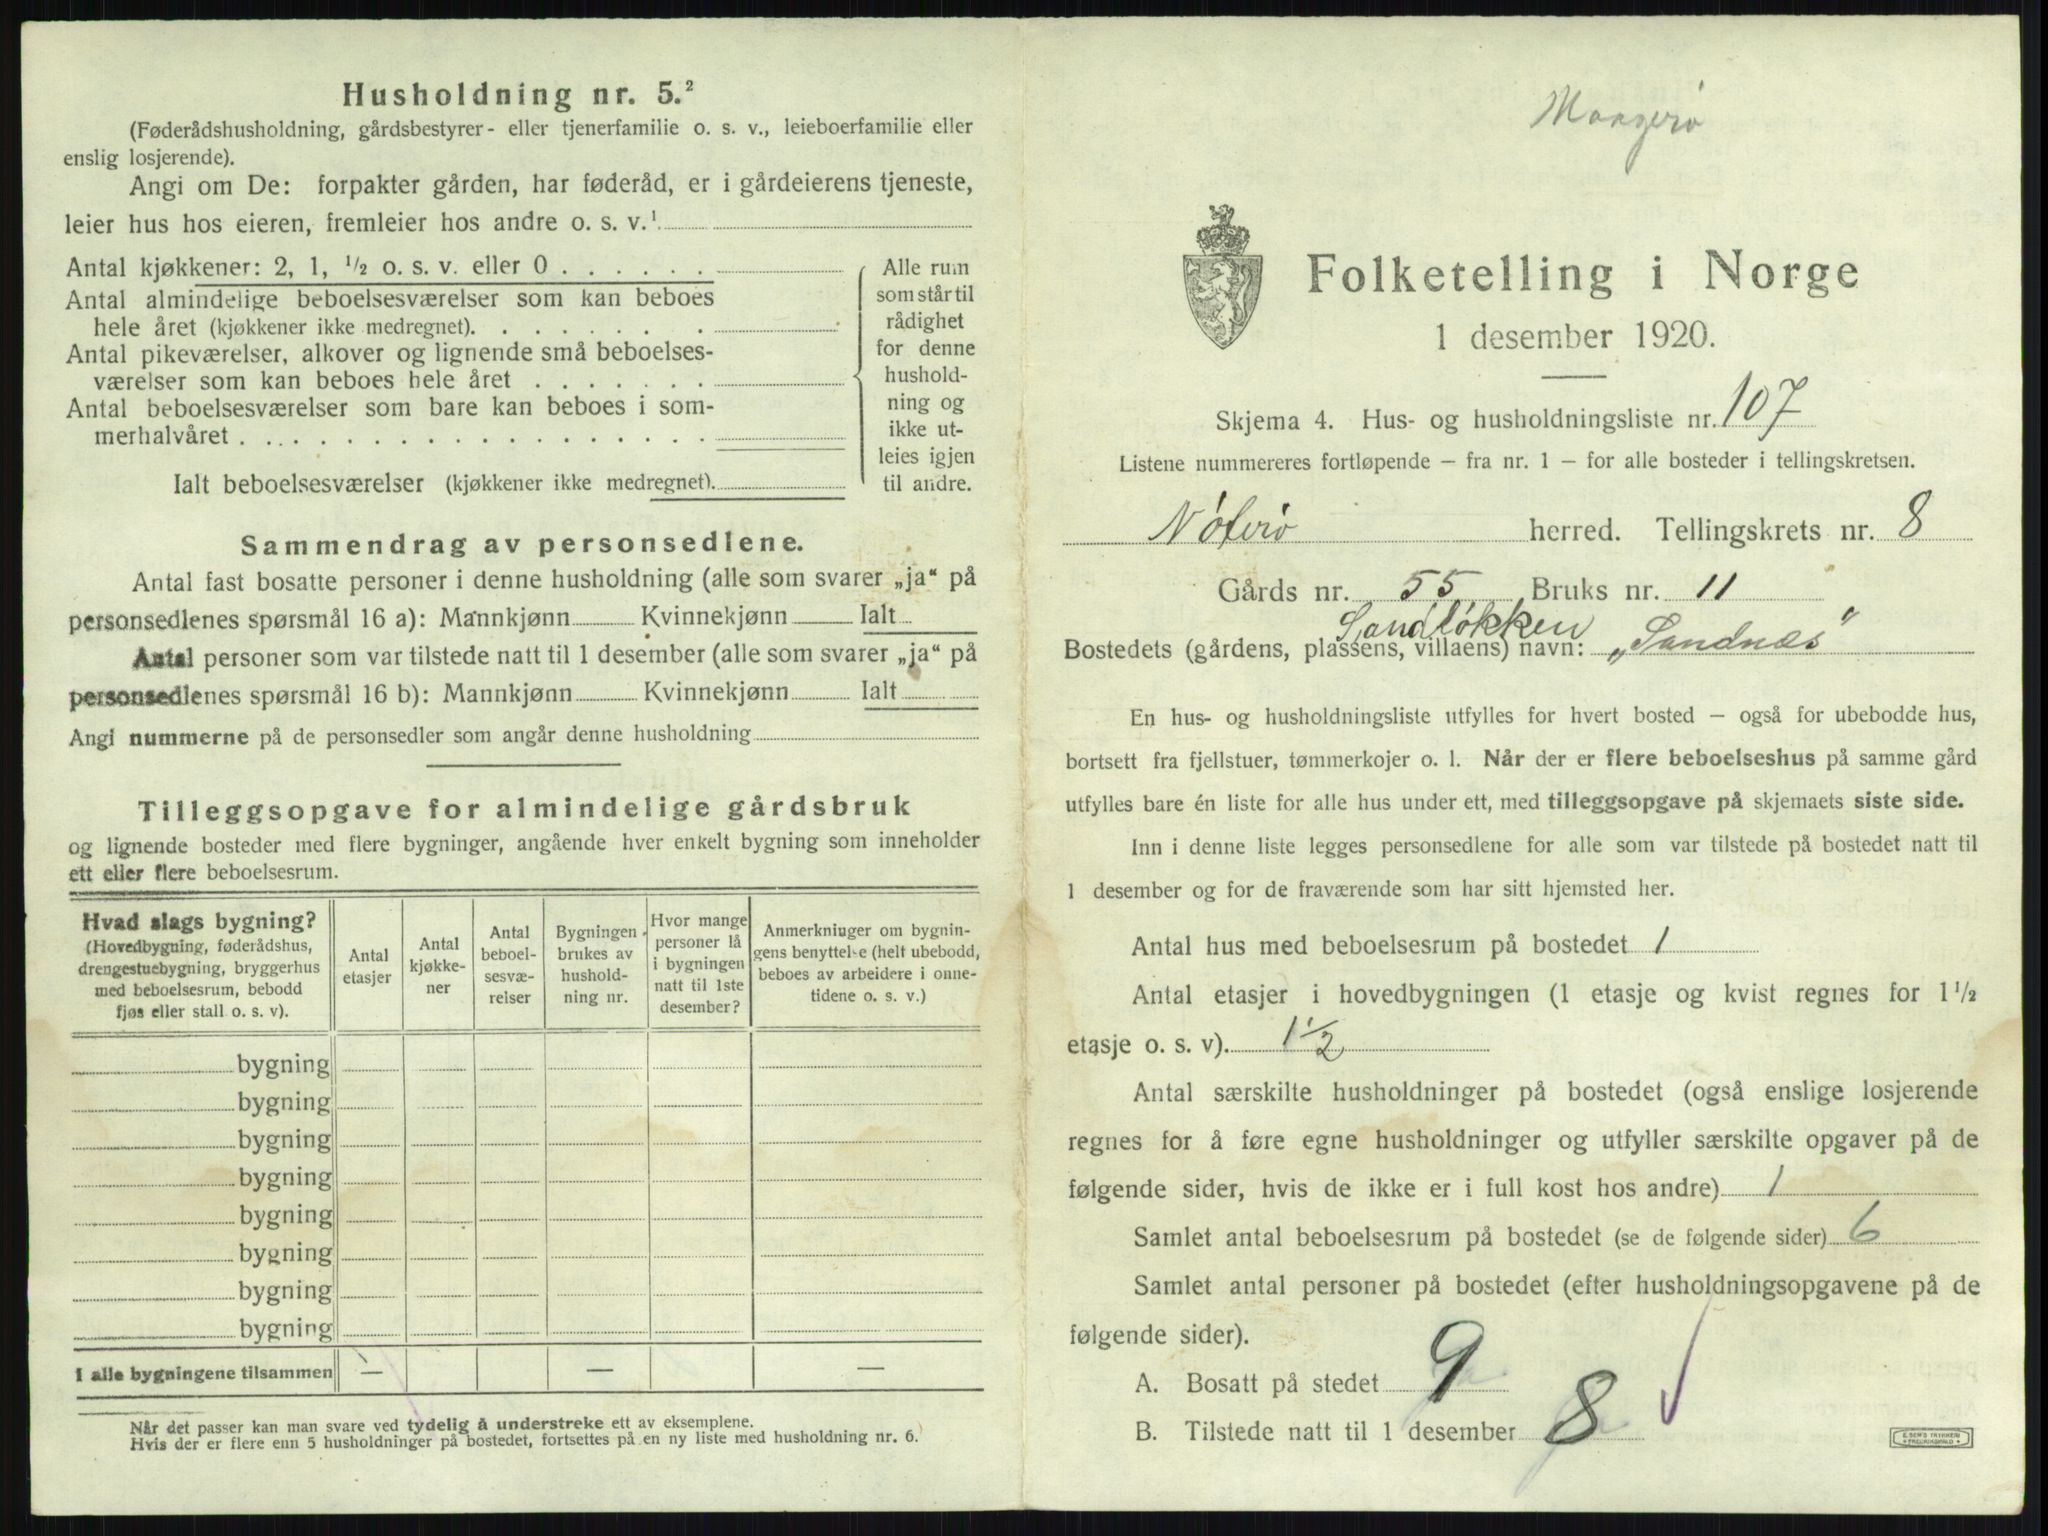 Husholdning nr. 5.²
(Føderådshusholdning, gårdsbestyrer- eller tjenerfamilie o. s. v., leieboerfamilie eller
enslig losjerende).
Angi om De: forpakter gården, har føderåd, er i gårdeierens tjeneste,
leier hus hos eieren, fremleier hos andre o. s. v.¹
Antal kjøkkener: 2, 1, ½ o. s. v. eller 0 . . . . . .
Antal almindelige beboelsesværelser som kan beboes
hele året (kjøkkener ikke medregnet). . . . . . . .
Antal pikeværelser, alkover og lignende små beboelses-
værelser som kan beboes hele året . . . . . . .
Antal beboelsesværelser som bare kan beboes i som-
merhalvåret . . . . . . . . . . . . . . . . . .
Ialt beboelsesværelser (kjøkkener ikke medregnet).
Alle rum
som står til
rådighet
for denne
hushold-
ning og
ikke ut-
leies igjen
til andre.
Sammendrag av personsedlene.
Antal fast bosatte personer i denne husholdning (alle som svarer „ja“ på
personsedlenes spørsmål 16 a): Mannkjønn Kvinnekjønn Ialt
Antal personer som var tilstede natt til 1 desember (alle som svarer „ja“ på
personsedlenes spørsmål 16 b): Mannkjønn Kvinnekjønn Ialt
Angi nummerne på de personsedler som angår denne husholdning
Tilleggsopgave for almindelige gårdsbruk
og lignende bosteder med flere bygninger, angående hver enkelt bygning som inneholder
ett eller flere beboelsesrum.
Hvad slags bygning?
(Hovedbygning, føderådshus,
drengestuebygning, bryggerhus
med beboelsesrum, bebodd
fjøs eller stall o. s. v).
Antal
etasjer
Antal
kjøkke-
ner
Antal
beboel-
sesvæ-
relser
Bygningen
brukes av
hushold-
ning nr.
Hvor mange
personer lå
i bygningen
natt til 1ste
desember?
Anmerkniuger om bygnin-
gens benyttelse (helt ubebodd,
beboes av arbeidere i onne-
tidene o. s. v.)
bygning
bygning
bygning
bygning
bygning
bygning
bygning
bygning
I alle bygningene tilsammen — — —
Når det passer kan man svare ved tydelig å understreke ett av eksemplene.
Hvis der er flere enn 5 husholdninger på bostedet, fortsettes på en ny liste med husholdning nr. 6.
Mangerø
Folketelling i Norge
1 desember 1920.
Skjema 4. Hus- og husholdningsliste nr. 107
Listene nummereres fortløpende – fra nr. 1 – for alle bosteder i tellingskretsen.
Nøterø herred. Tellingskrets nr. 8
Gårds nr. 55 Bruks nr. 11
Sandløkken
Bostedets (gårdens, plassens, villaens) navn: „Sandnæs“
En hus- og husholdningsliste utfylles for hvert bosted – også for ubebodde hus,
bortsett fra fjellstuer, tømmerkojer o. l. Når der er flere beboelseshus på samme gård
utfylles bare én liste for alle hus under ett, med tilleggsopgave på skjemaets siste side.
Inn i denne liste legges personsedlene for alle som var tilstede på bostedet natt til
1 desember og for de fraværende som har sitt hjemsted her.
Antal hus med beboelsesrum på bostedet 1
Antal etasjer i hovedbygningen (1 etasje og kvist regnes for 1½
etasje o. s. v). 1½
Antal særskilte husholdninger på bostedet (også enslige losjerende
regnes for å føre egne husholdninger og utfyller særskilte opgaver på de
følgende sider, hvis de ikke er i full kost hos andre) 1
Samlet antal beboelsesrum på bostedet (se de følgende sider) 6
Samlet antal personer på bostedet (efter husholdningsopgavene på de
følgende sider).
A. Bosatt på stedet 9
B. Tilstede natt til 1 desember 8